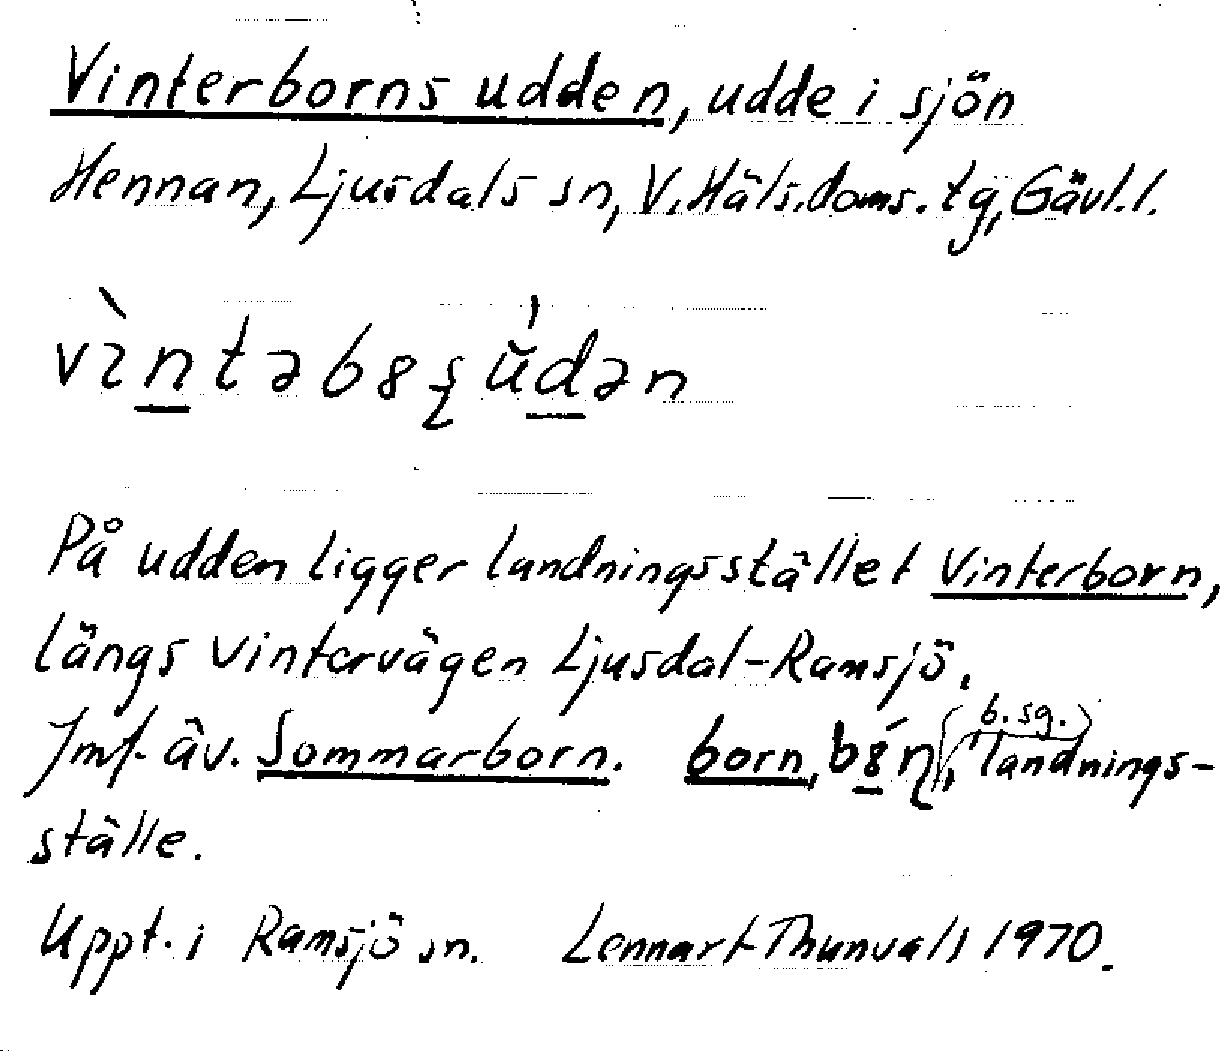 Vinterborns udden, udde i sjön
Hennan, Ljusdals sn, V. Häls. doms. tg, Gävl. l.
vìntəb8ʂŭ́dən
På udden ligger landningsstället Vinterborn,
längs vintervägen Ljusdal-Ramsjö.
Jmf. äv. Sommarborn. born, b8́ɳ (b. sg.), 'landnings-
ställe.
Uppt. i Ramsjö sn. Lennart Thunvall 1970.